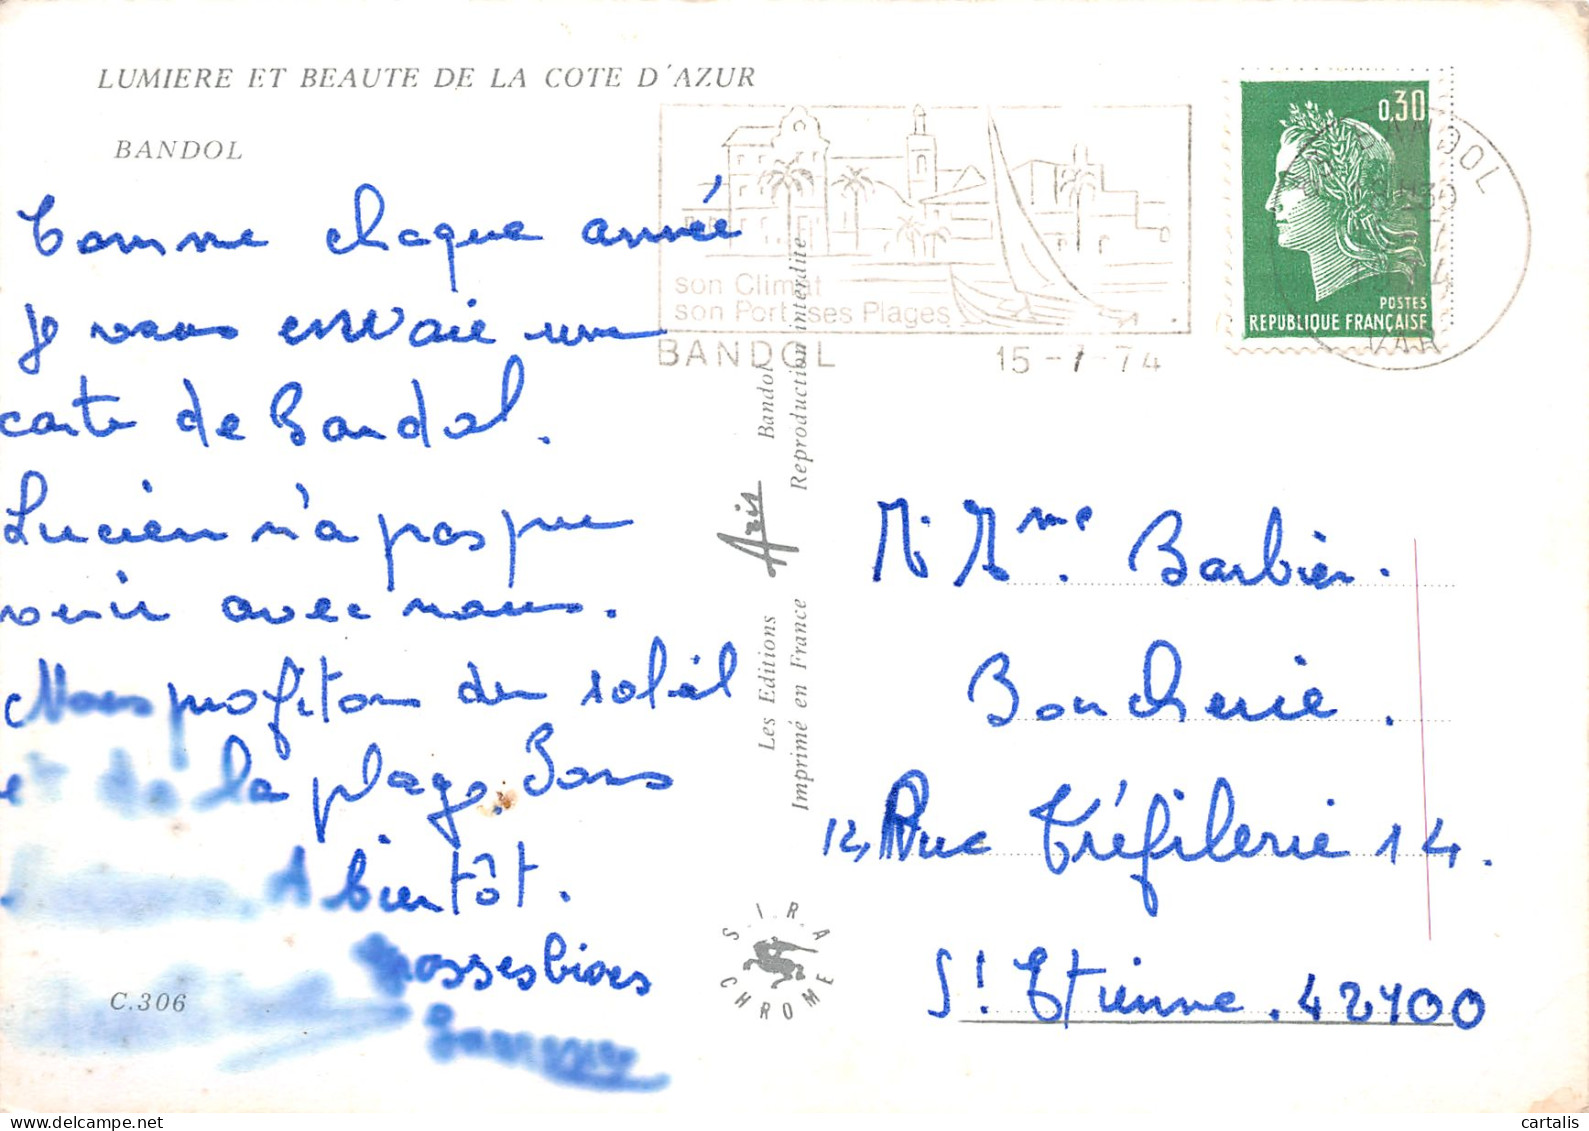 LUMIERE ET BEAUTE DE LA COTE D'AZUR
BANDOL
Comme chaque année
je vous envoie une
carte de Bandol.
Lucien n'a pas pu
venir avec nous.
Nous profitons du soleil
et de la plage. Bons
A bientôt.
Grosses bises
C.306
son Climat
son Port ses Plages
BANDOL 15-7-74
0,30
POSTES
REPUBLIQUE FRANÇAISE
BANDOL
VAR
Les Editions Aris Bandol
Imprimé en France Reproduction interdite
SIRA
CHROME
M. Mme. Barbier.
Boucherie.
12, Rue Tréfilerie 14.
St Etienne. 42100
cartalis